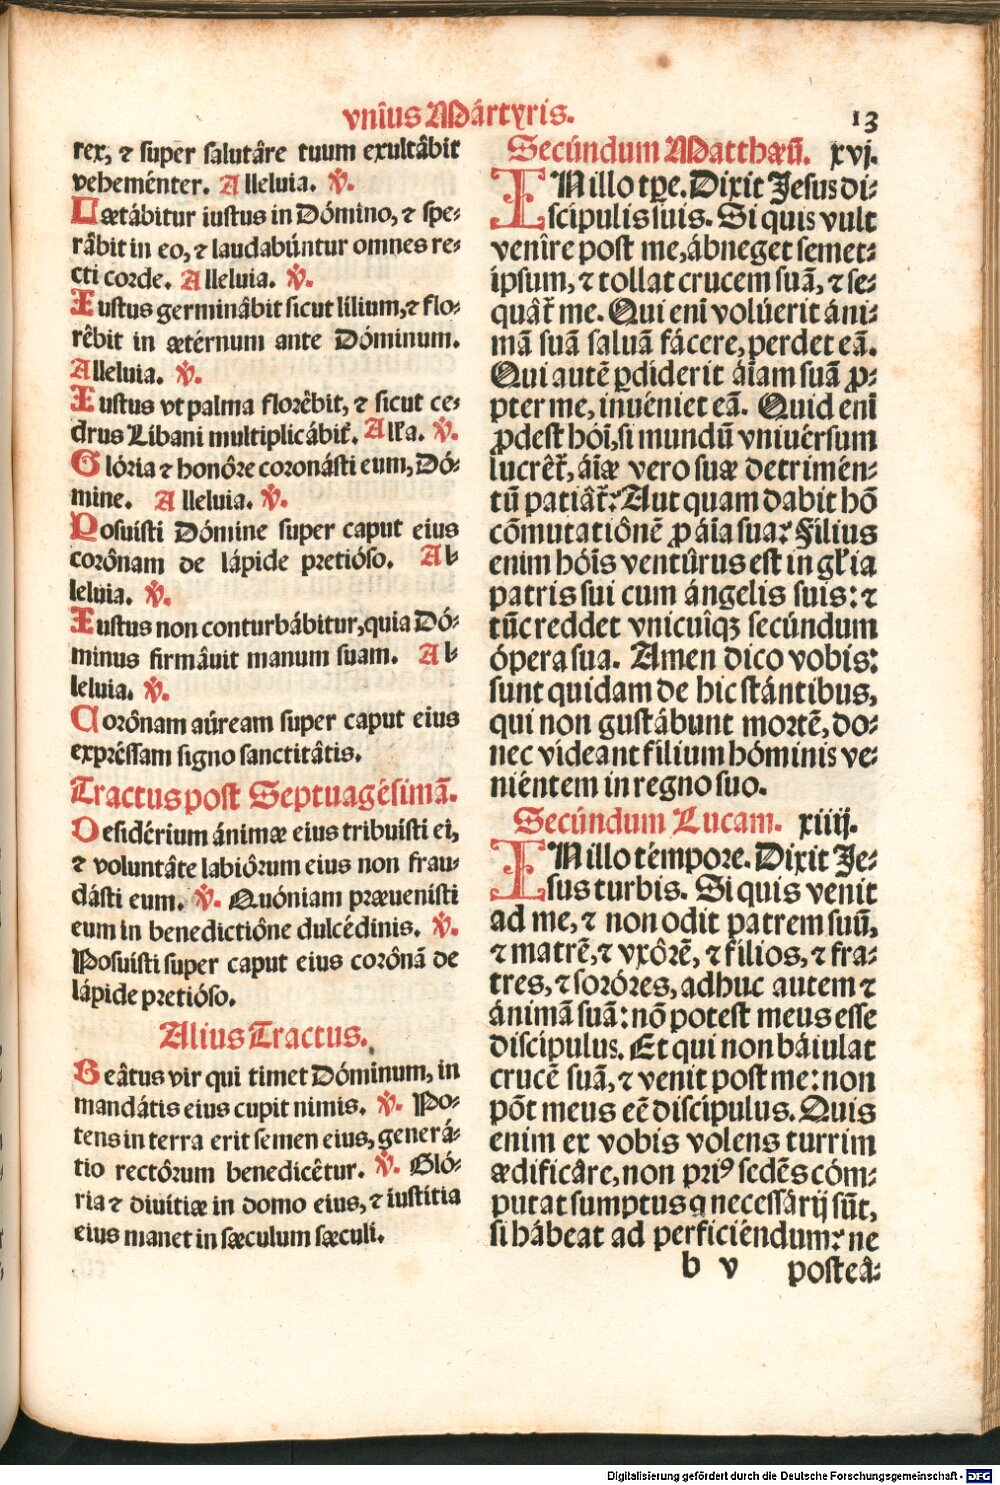 vnîus Mártyris.
13
rex, ⁊ super salutâre tuum exultâbit
veheménter. Alleluia. ℣.
Lætábitur iustus in Dómino, ⁊ spe-
râbit in eo, ⁊ laudabúntur omnes re-
cti corde. Alleluia. ℣.
Iustus germinâbit sicut lilium, ⁊ flo-
rêbit in ætérnum ante Dóminum.
Alleluia. ℣.
Iustus vt palma florêbit, ⁊ sicut ce-
drus Libani multiplicábit̃. Alła. ℣.
Glória ⁊ honôre coronásti eum, Dó-
mine. Alleluia. ℣.
Posuisti Dómine super caput eius
corônam de lápide pretióso. Al-
leluia. ℣.
Iustus non conturbábitur, quia Dó-
minus firmâuit manum suam. Al-
leluia. ℣.
Corônam aúream super caput eius
expréssam signo sanctitâtis.
Tractus post Septuagésimã.
Desidérium ánimæ eius tribuisti ei,
⁊ voluntâte labiôrum eius non frau-
dásti eum. ℣. Quóniam præuenisti
eum in benedictiône dulcédinis. ℣.
Posuisti super caput eius corônã de
lápide pretióso.
Alius Tractus.
Beâtus vir qui timet Dóminum, in
mandátis eius cupit nimis. ℣. Po-
tens in terra erit semen eius, generá-
tio rectôrum benedicêtur. ℣. Gló-
ria ⁊ diuitiæ in domo eius, ⁊ iustitia
eius manet in sæculum sæculi.
Secúndum Matthæũ. xvj.
IN illo tꝑe. Dixit Jesus di-
scipulis suis. Si quis vult
venîre post me, ábneget semet-
ipsum, ⁊ tollat crucem suã, ⁊ se-
quât̃ me. Qui eni᷈ volúerit áni-
mã suã saluã fácere, perdet eã.
Qui autẽ ꝑdiderit ai᷈am suã ꝓ-
pter me, inuéniet eã. Quid eni᷈
ꝓdest hoi᷈, si mundũ vniuérsum
lucrêt̃, ai᷈æ vero suæ detrimén-
tũ patiât̃? Aut quam dabit hõ
cõmutatiônẽ ꝓ ai᷈a sua? Filius
enim hoi᷈s ventûrus est in głia
patris sui cum ángelis suis: ⁊
tũc reddet vnicuîqꝫ secúndum
ópera sua. Amen dico vobis:
sunt quidam de hic stántibus,
qui non gustábunt mortẽ, do-
nec videant filium hóminis ve-
niéntem in regno suo.
Secúndum Lucam. xiiij.
IN illo témpore. Dixit Je-
sus turbis. Si quis venit
ad me, ⁊ non odit patrem suũ,
⁊ matrẽ, ⁊ vxôrẽ, ⁊ filios, ⁊ fra-
tres, ⁊ sorôres, adhuc autem ⁊
ánimã suã: nõ potest meus esse
discipulus. Et qui non báiulat
crucẽ suã, ⁊ venit post me: non
põt meus eẽ discipulus. Quis
enim ex vobis volens turrim
ædificâre, non priꝰ sedẽs cóm-
putat sumptus q necessárij sũt,
si hábeat ad perficiéndum? ne
b v posteâ-
Digitalisierung gefördert durch die Deutsche Forschungsgemeinschaft - DFG